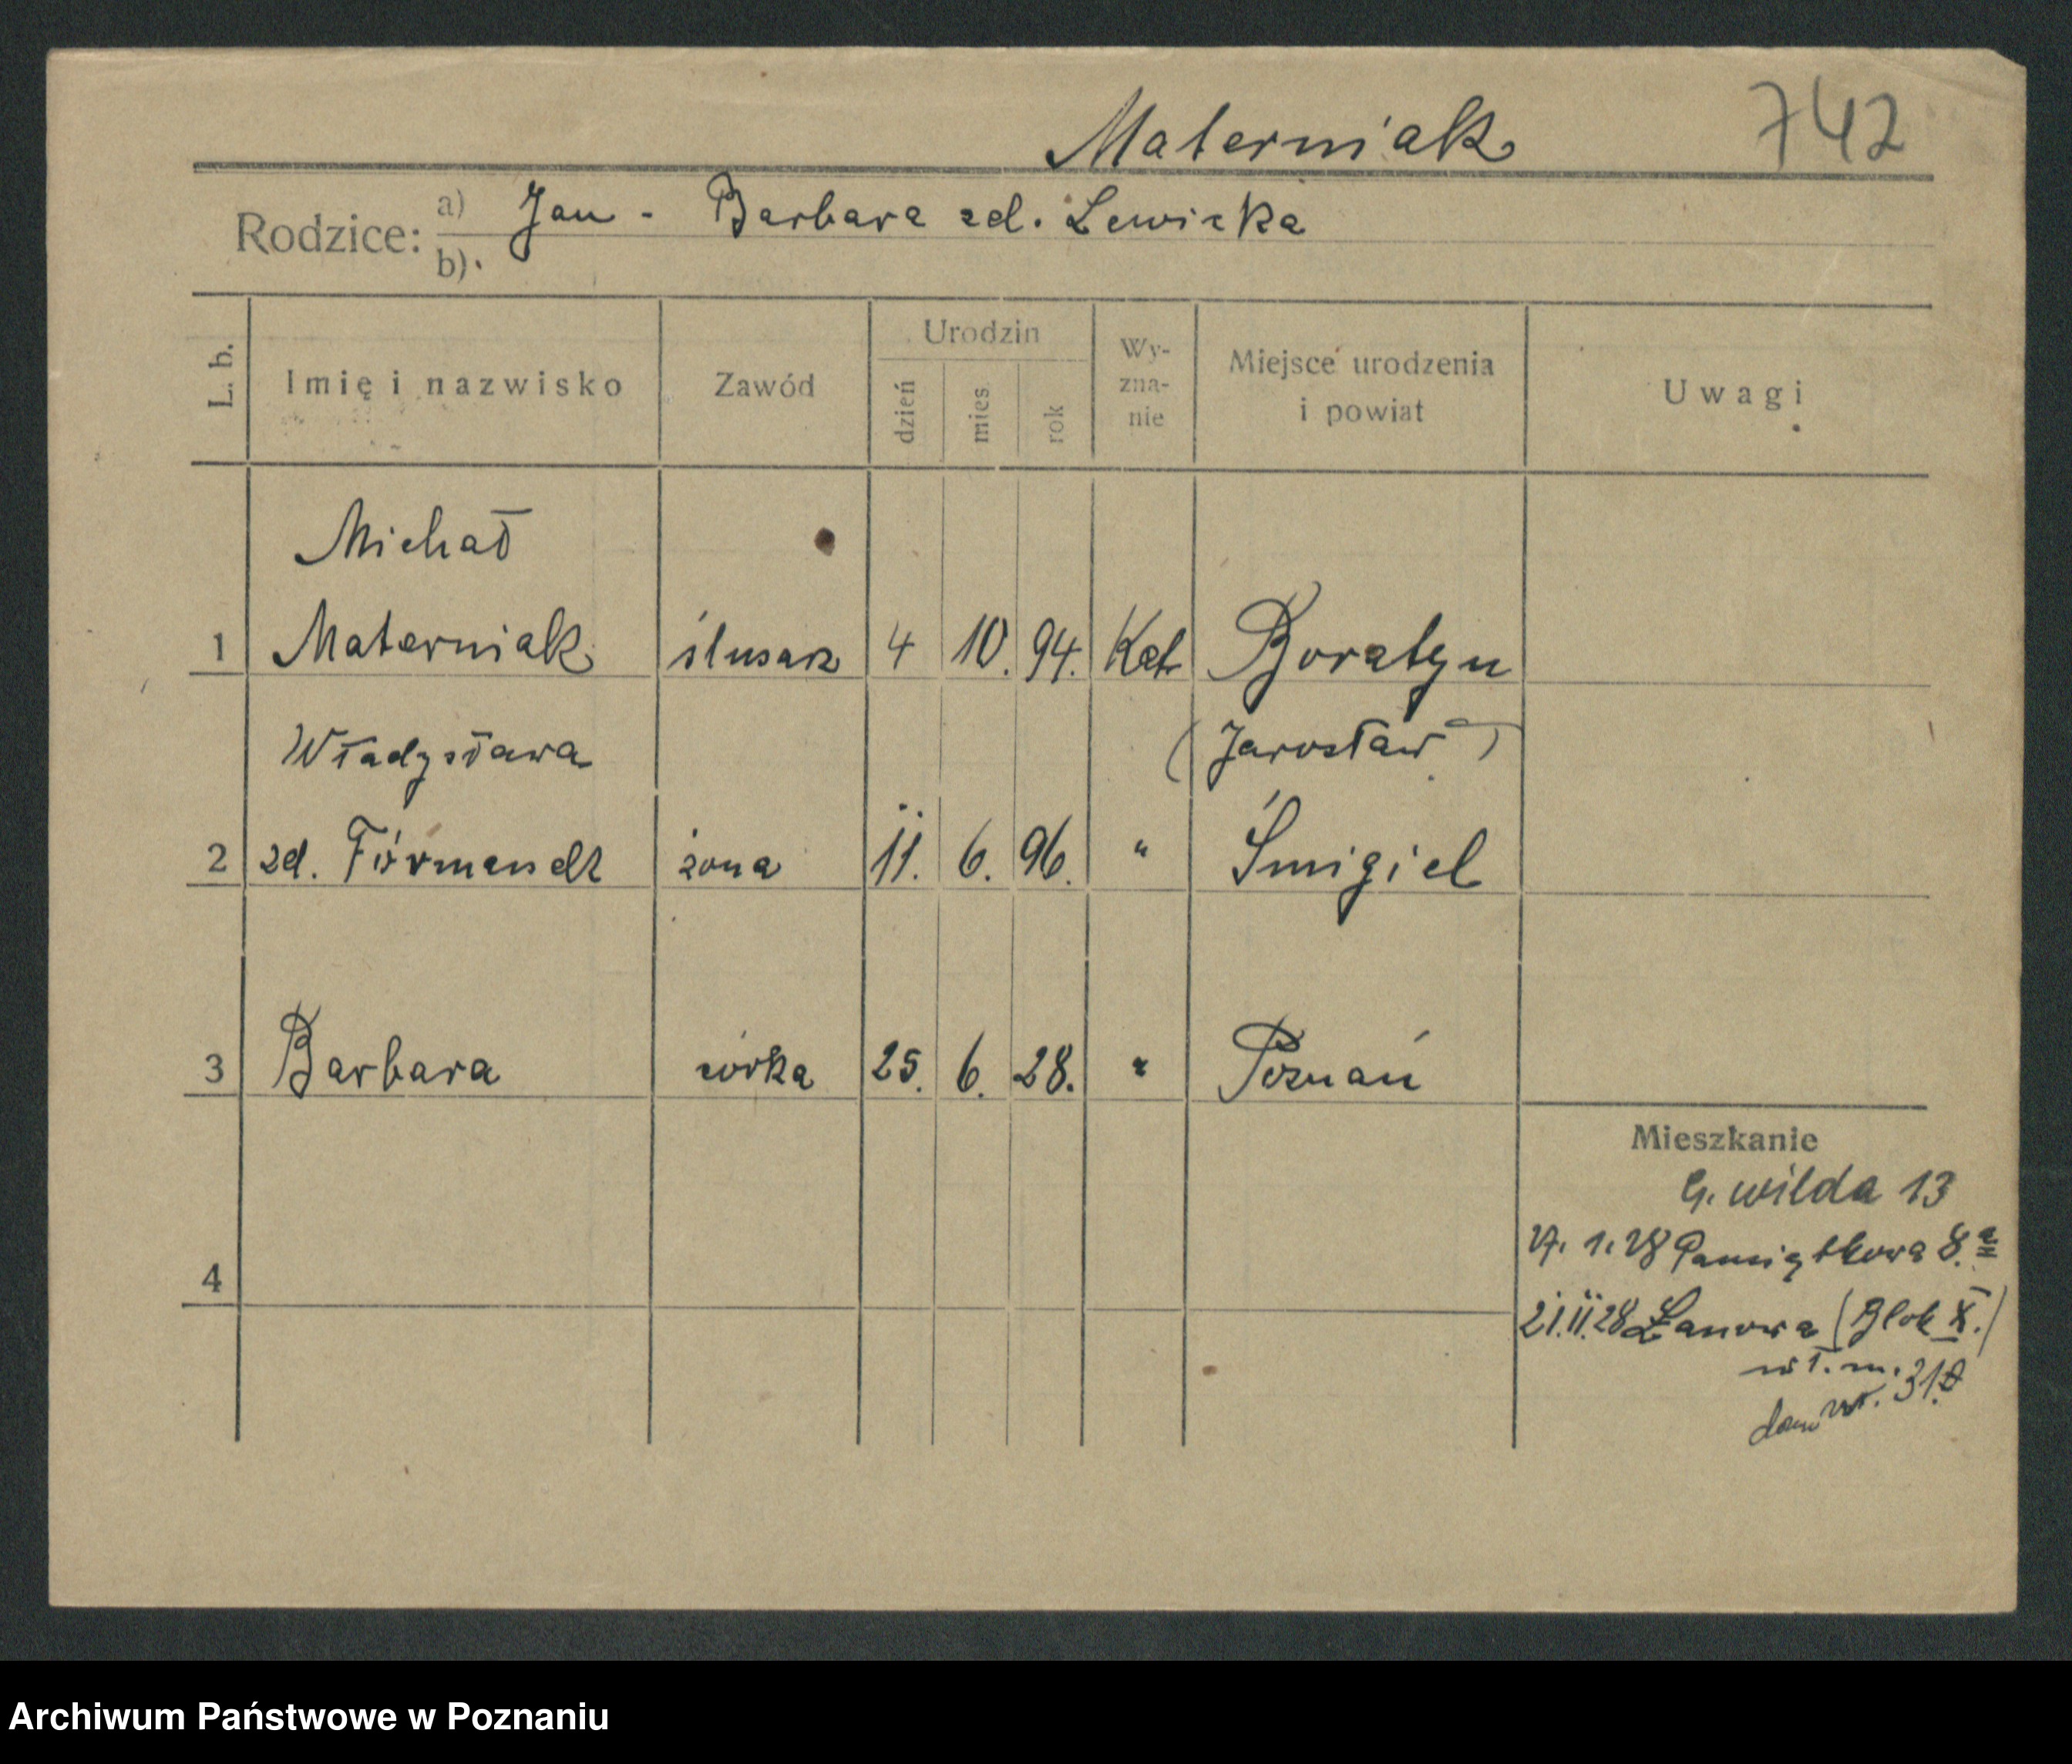 Materniak 742
Rodzice: a) Jan - Barbara zd. Lewicka
b)
L. b. Imię i nazwisko Zawód Urodzin dzień mies rok Wy-zna-nie Miejsce urodzenia i powiat Uwagi
Michał
1 Materniak ślusarz 4 10. 94. Kat Boratyn
Władysława (Jarosław)
2 zd. żona 11. 6. 96. " Śmigiel
3 Barbara córka 25. 6. 28. " Poznań
Mieszkanie
G. wilda 13
1. 28 Pamiątkowa 8.a
4
21. 11. 28 Łanowa (Blok X.)
m. 31
dom nr.
Archiwum Państwowe w Poznaniu